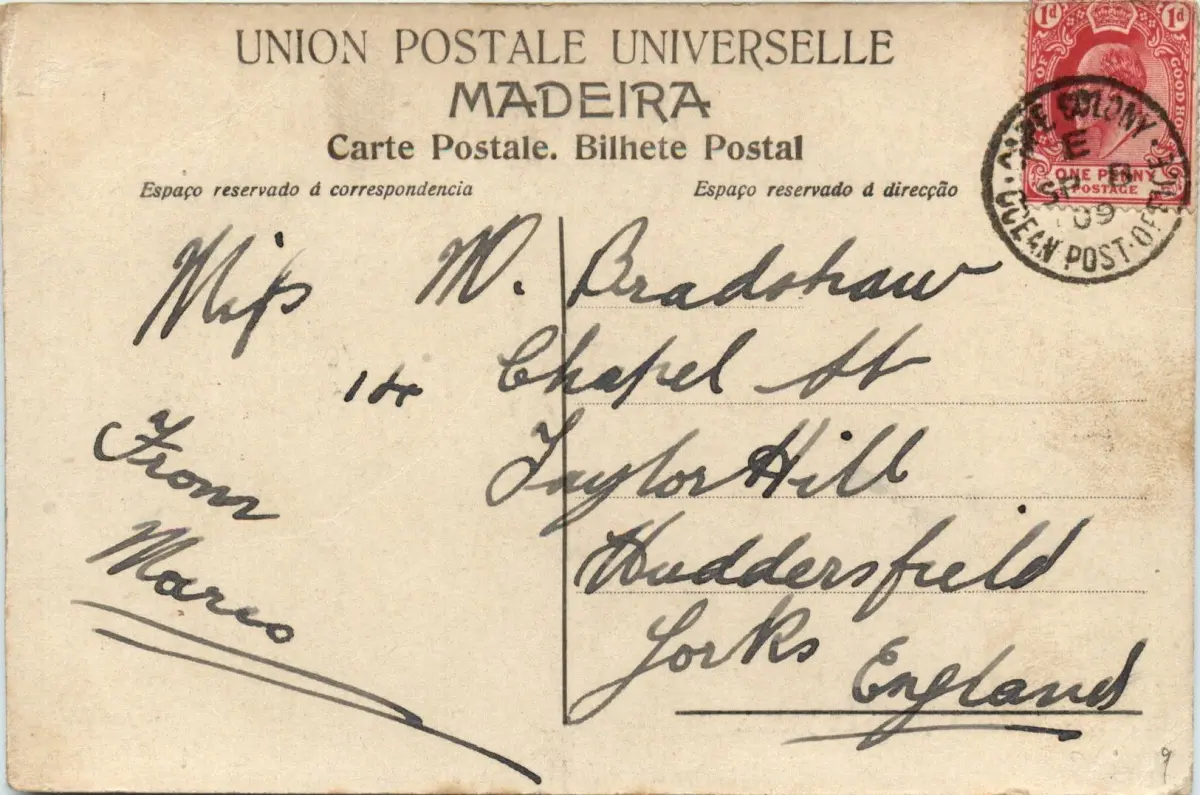 UNION POSTALE UNIVERSELLE
MADEIRA
Carte Postale. Bilhete Postal
Espaço reservado á correspondencia
Espaço reservado á direcção
1d 1d
OF GOOD HO
ONE PENNY
POSTAGE
CAPE COLONY
E
SP 8
09
OCEAN POST·OFFICE
Miss M. Bradshaw
14 Chapel St
Taylor Hill
Huddersfield
Yorks
England
From
9